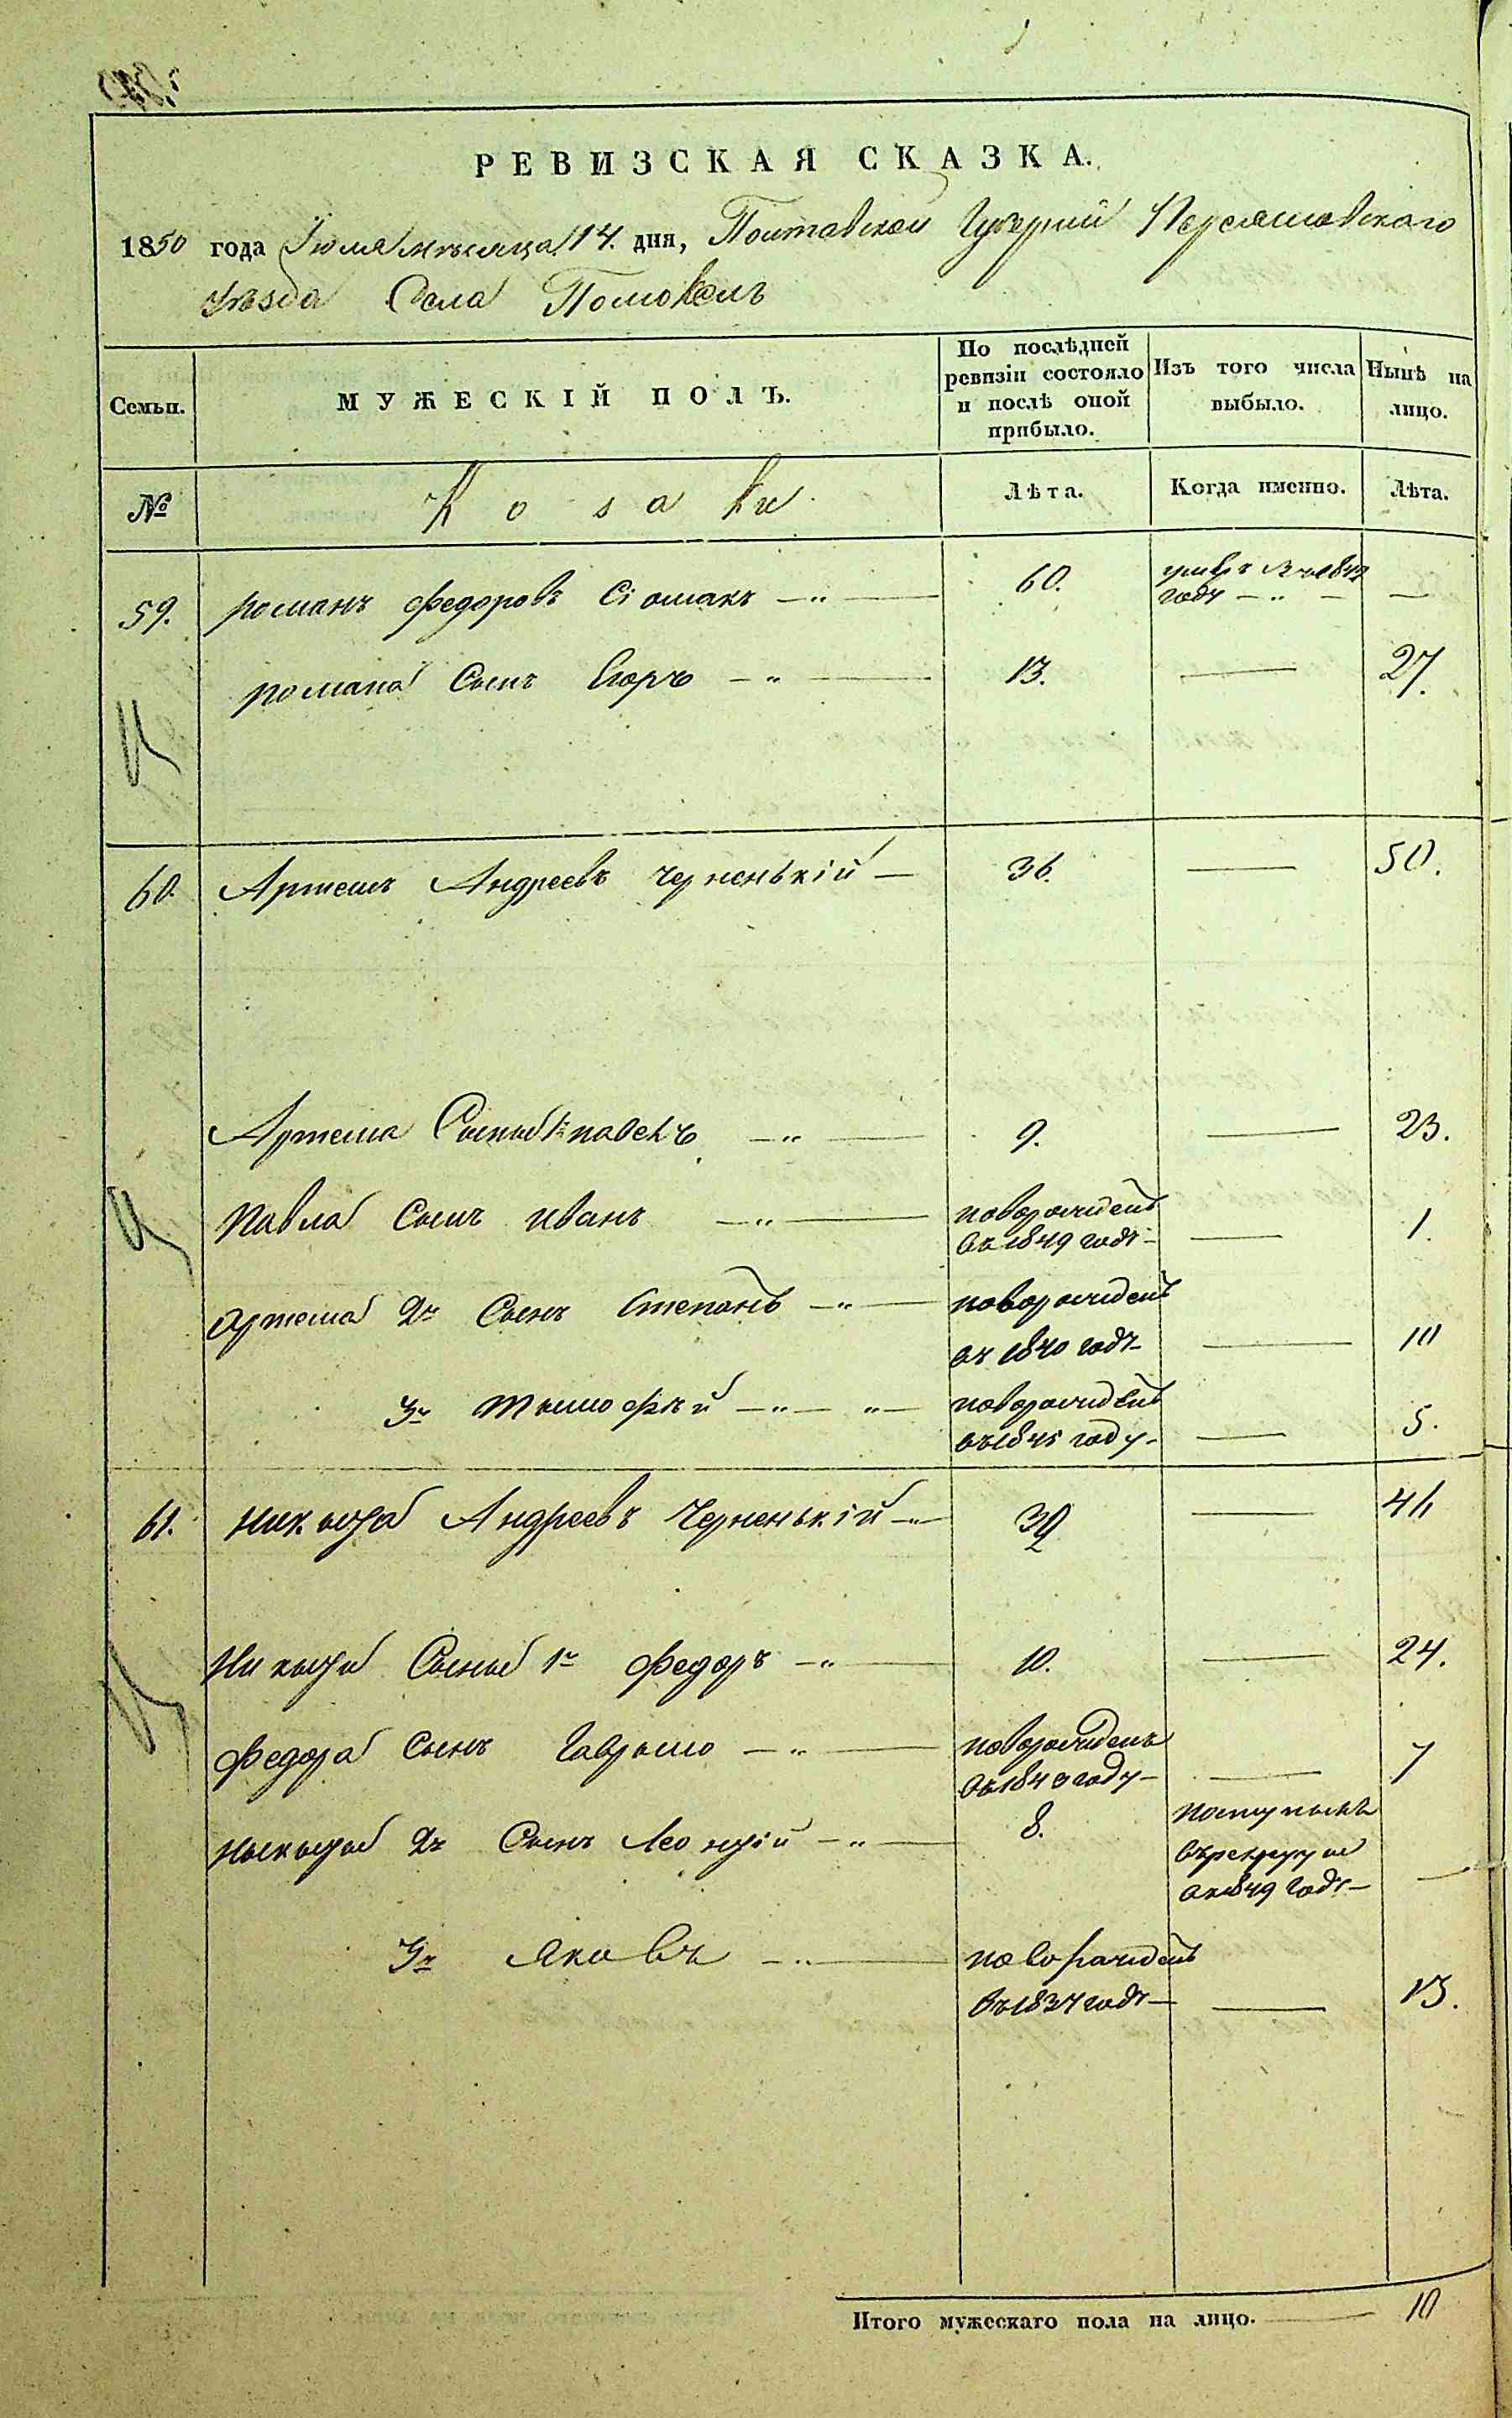 РЕВИЗСКАЯ СКАЗКА.
1850 года Іюля мѣсяца 14. дня, Полтавской Губерніи Переяславскаго
уѣзда Села Помоклъ
Семьи. МУЖЕСКІЙ ПОЛЪ. По послѣдней ревизіи состояло и послѣ оной прибыло. Изъ того числа выбыло. Нынѣ на лицо.
№ Козаки Лѣта. Когда именно. Лѣта.
59. Романъ Федоровъ Сіомакъ 60. умеръ въ году —
Романа Сынъ Егоръ 13. — 27.
60. Артемъ Андреевъ Черненькій 36. — 50.
Артема Сыновья 1й Павелъ 9. — 23.
Павла Сынъ Иванъ новорожденъ въ 1849 годѣ — 1.
Артема 2й Сынъ Степанъ новорожденъ въ 1840 годѣ — 10
3й Тимофѣй новорожденъ въ 1845 году — 5.
61. Никита Андреевъ Черненькій 32 — 46
Никиты Сыновья 1й Федоръ 10. — 24.
Федора Сынъ Гаврыло новорожденъ въ 1843 году — 7
Никиты 2й Сынъ Леонтій 8. поступилъ въ рекруты въ 1849 годѣ —
3й Яковъ новорожденъ въ 1837 годѣ — 13.
Итого мужескаго пола на лицо. 10